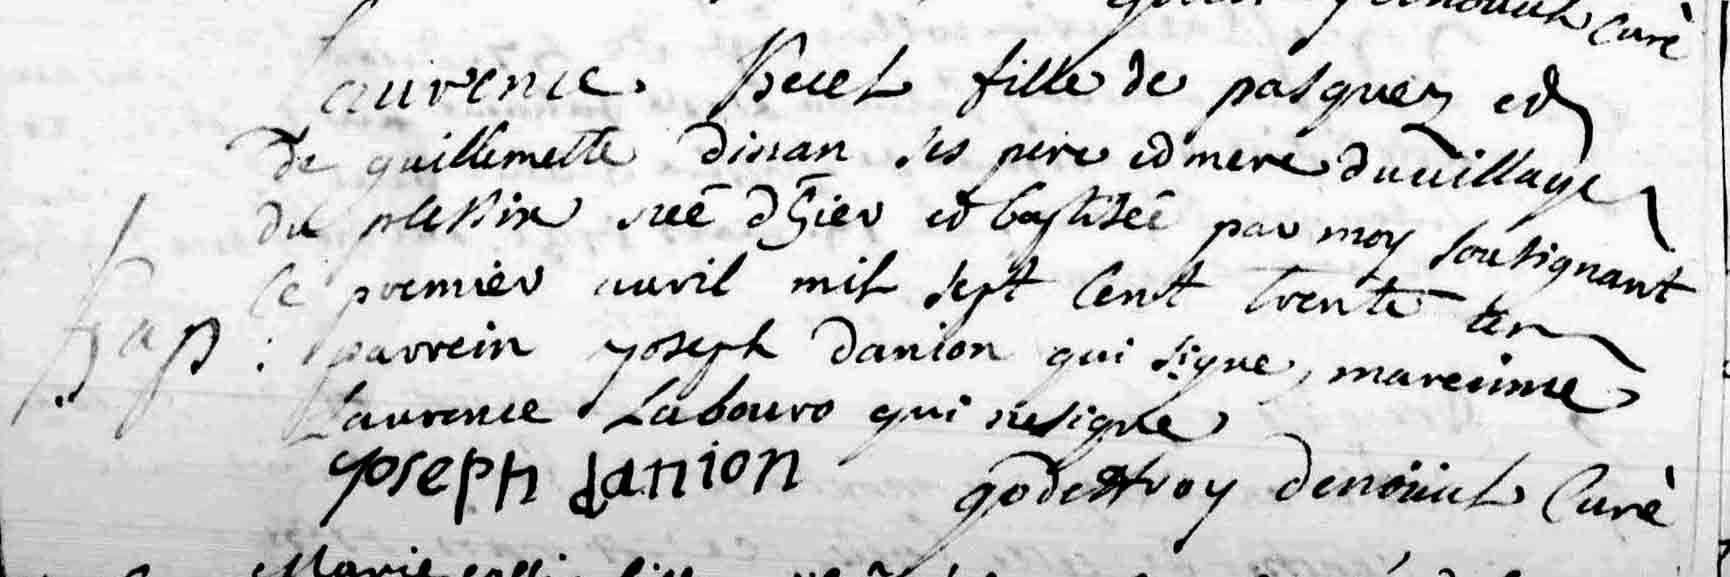 curé
Laurence Becel fille de pasquer et
de guillemette dinan ses pere et mere du village
du plessix née d'hier et baptisée par moy sousignant
ce premier auvril mil sept cent trente
Bap : parrein yoseph danion qui signe, mareinne
Laurence Labouro qui ne signe
yoseph danion godeffroy denoüiel Curé
Marie fille